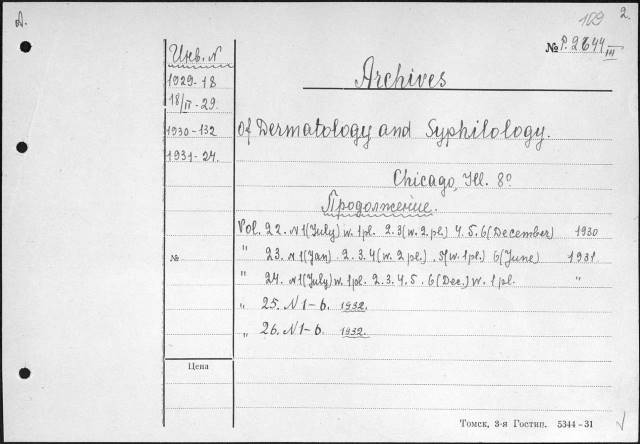 A.
109
2.
№ P.2644 III
Инв. N
1929-18
18/II-29.
1930-132
1931-24.
№
Цена
Archives
of Dermatology and Syphilology.
Chicago, Ill. 8°
Продолжение.
Vol. 22. N 1 (July) w. 1 pl. 2.3 (w. 2. pl.) 4. 5. 6 (December) 1930
" 23. N 1 (Jan) . 2. 3. 4 (w. 2 pl.) . 5 (w. 1 pl.) 6 (June) 1931
" 24. N 1 (July) w. 1 pl. 2. 3. 4. 5 . 6 (Dec.) w. 1 pl. "
" 25. N 1-6. 1932.
" 26. N 1-6. 1932.
Томск, 3-я Гостип. 5344-31